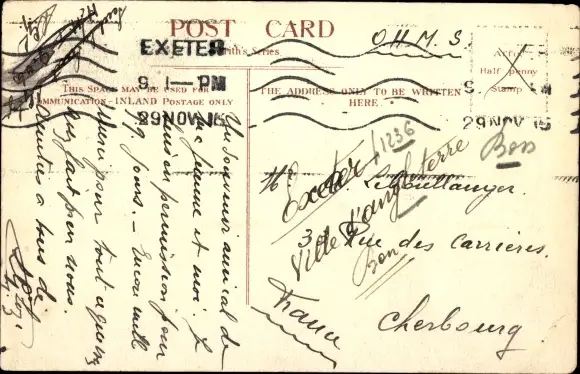 POST CARD
Smith's Series
THIS SPACE MAY BE USED FOR
COMMUNICATION - INLAND POSTAGE ONLY
THE ADDRESS ONLY TO BE WRITTEN
HERE
Half penny
Stamp
EXETER
9 1 - PM
29 NOV 15
29 NOV 15
O.H.M.S.
Un souvenir amical de
Jeanne et moi. Je
suis en permission pour
jours. - Encore mille
Merci pour tout ce que
fait pour nous.
Amitiés à tous de
Exeter 1236
Ville d'angleterre
Bon
Bon
Leboullanger
Rue des Carrières.
Cherbourg
France